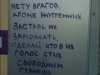 НЕТУ ВРАГОВ,
КРОМЕ ВНУТРЕННИХ
ЗАСТАВЬ ИХ
ЗАМОЛЧАТЬ,
СДЕЛАЙ ЧТОБ ИХ
ГОЛОС СТИХ
СВОБОДНЫМ